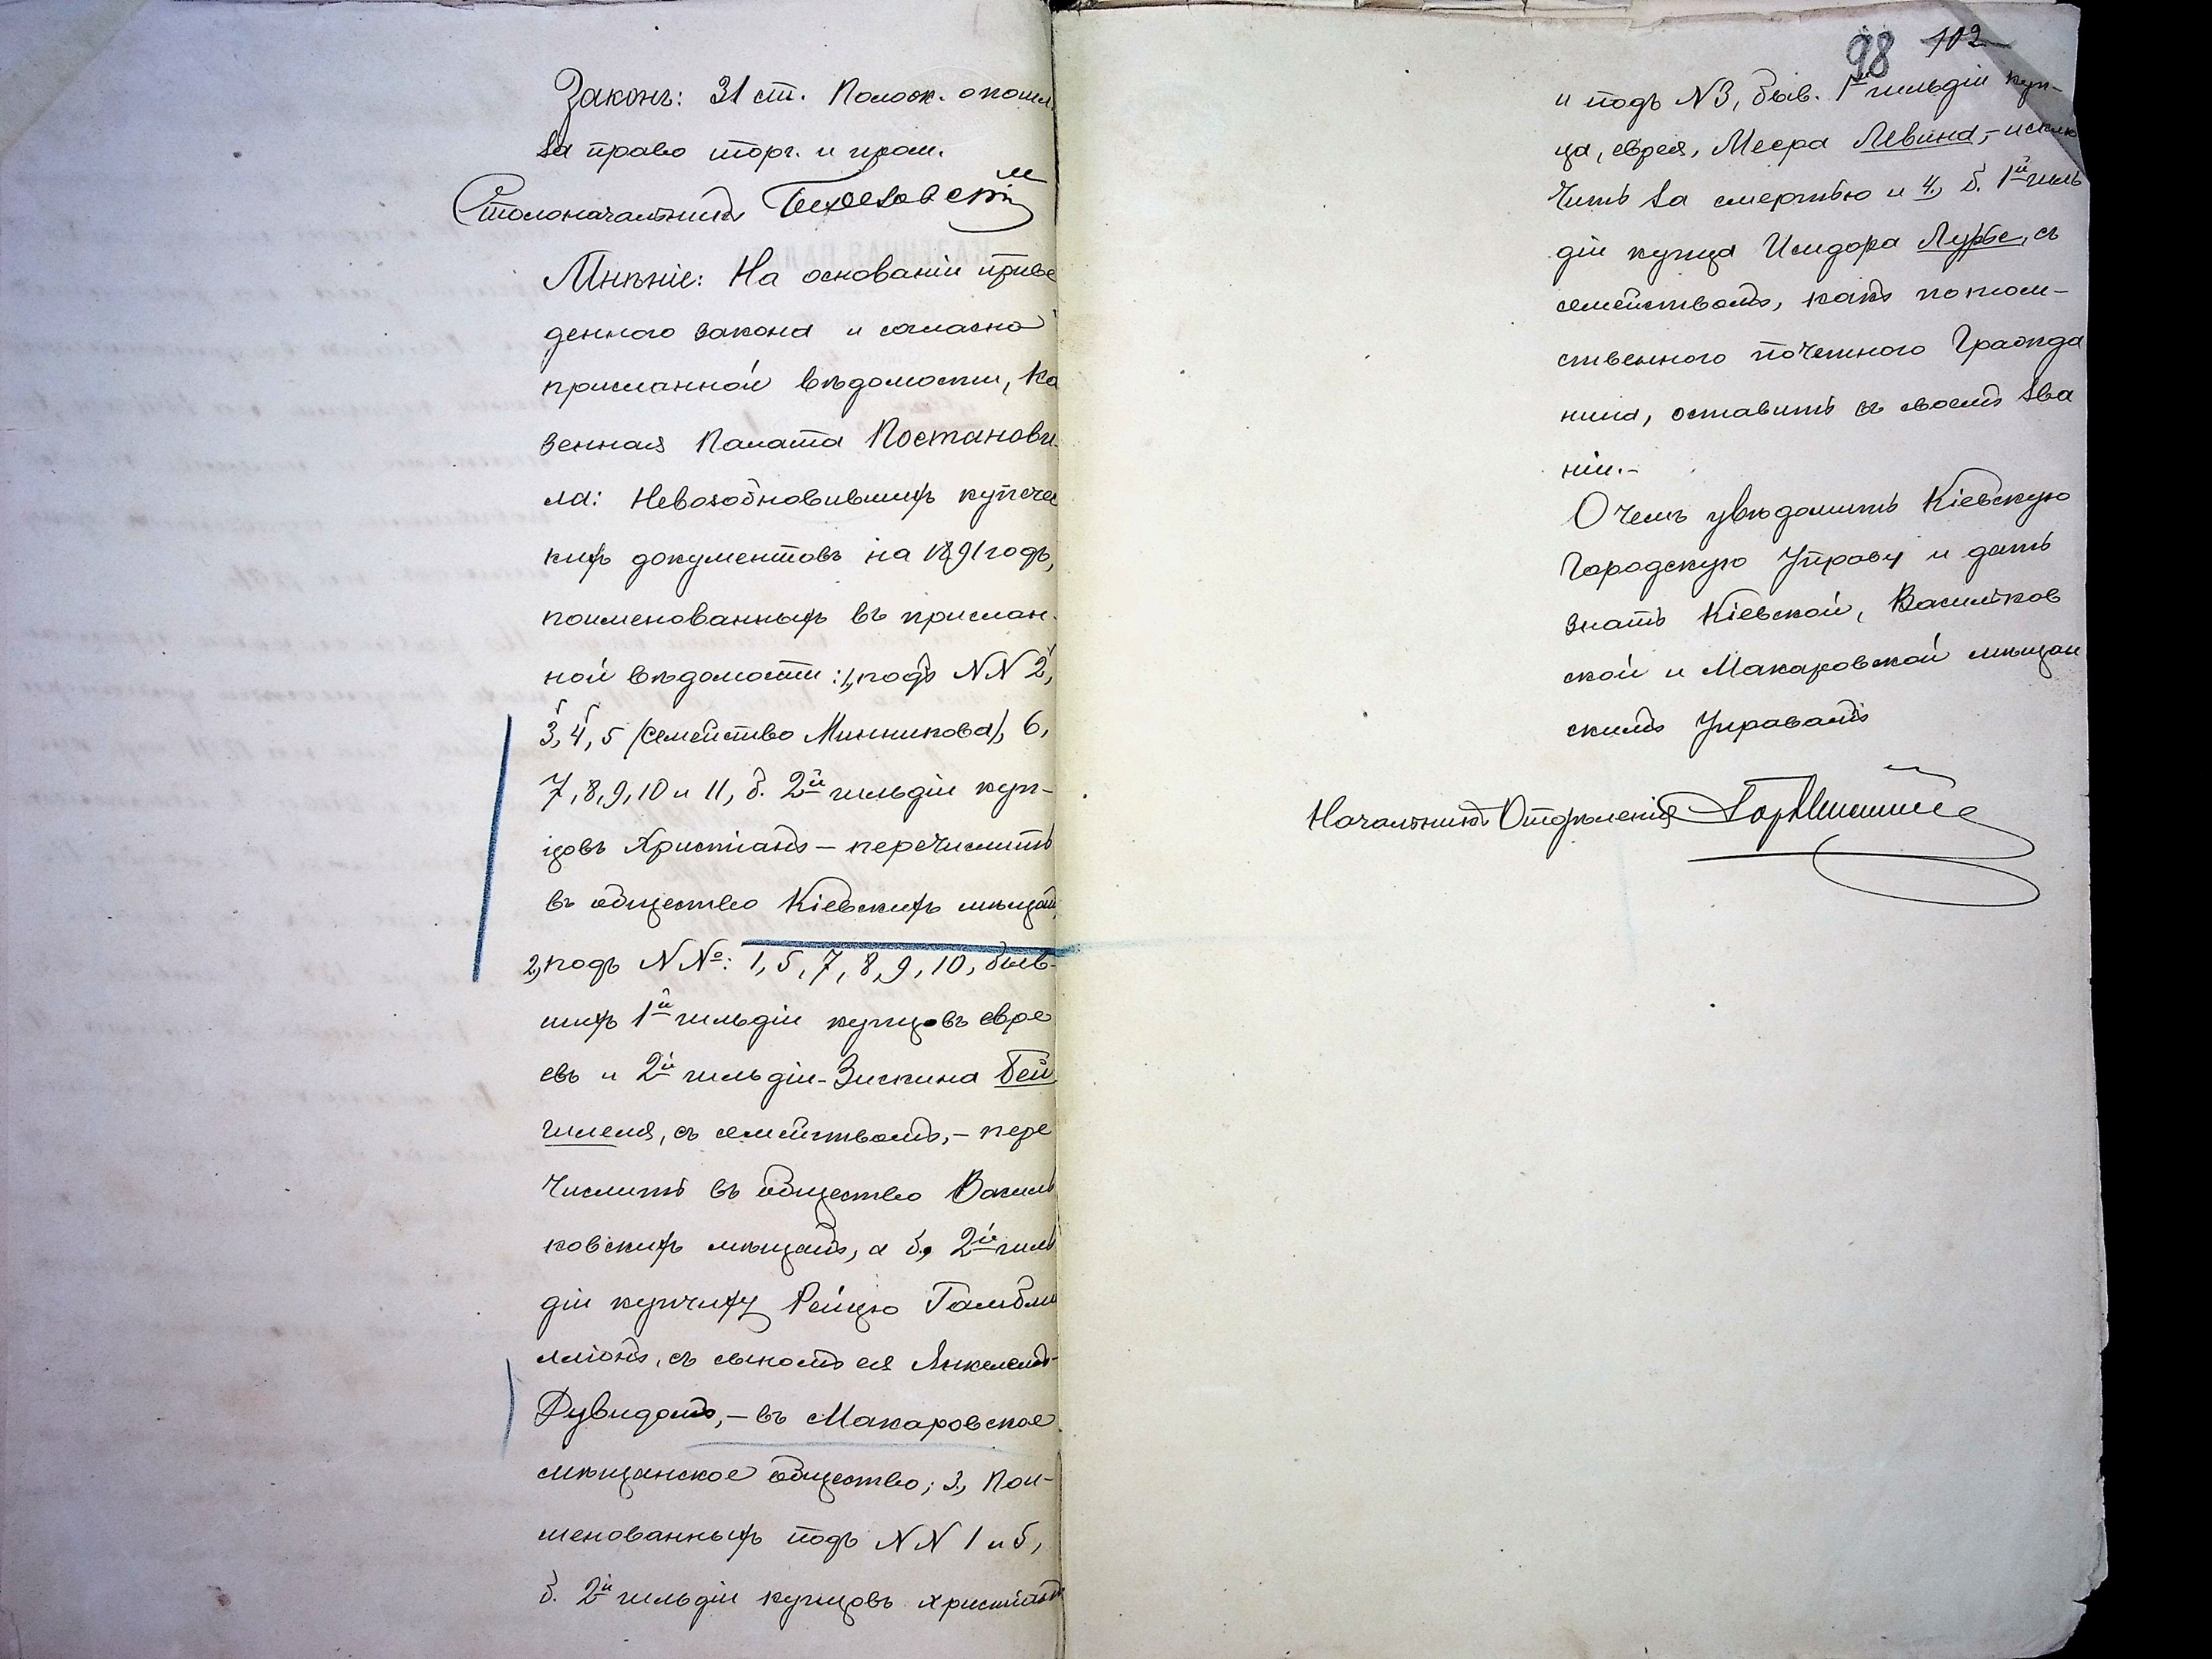 Законъ: 31 ст. Полож. о пошл.
за право торг. и пром.
Столоначальникъ
Мнѣніе: На основаніи приве
деннаго закона и согласно
присланной вѣдомости, Ка
зенная Палата Постанови-
ла: Невозобновившихъ купечес
кихъ документовъ на 1891 годъ,
поименованныхъ въ прислан-
ной вѣдомости: 1, подъ NN 2,
3, 4, 5 (семейство Минникова), 6,
7, 8, 9, 10 и 11, б. 2й гильдіи куп-
цовъ Христіанъ – перечислить
въ общество Кіевскихъ мѣщанъ,
2, подъ N№: 1, 5, 7, 8, 9, 10, быв-
шихъ 1й гильдіи купцовъ евре
евъ и 2й гильдіи – Зискина Бей
гилеля, съ семействомъ, – пере
числить въ общество Василь
ковскихъ мѣщанъ, а б. 2й гиль
діи купчиху Рейзю Гамбли
міонъ, съ сыномъ ея Янкелемъ-
Дувидомъ, – въ Макаровское
мѣщанское общество; 3, Пои-
менованныхъ подъ NN 1 и 5,
б. 2й гильдіи купцовъ христіанъ
98 102
и подъ N3, быв. 1й гильдіи куп-
ца, еврея, Меера Левина, – исклю
чить за смертью и 4, б. 1й гиль
діи купца Исидора Лурье, съ
семействомъ, какъ потом-
ственнаго почетнаго Гражда
нина, оставить въ своемъ зва
ніи. –
О чемъ увѣдомить Кіевскую
Городскую Управу и дать
знать Кіевской, Васильков
ской и Макаровской мѣщан
скимъ Управамъ
Начальникъ Отдѣленія